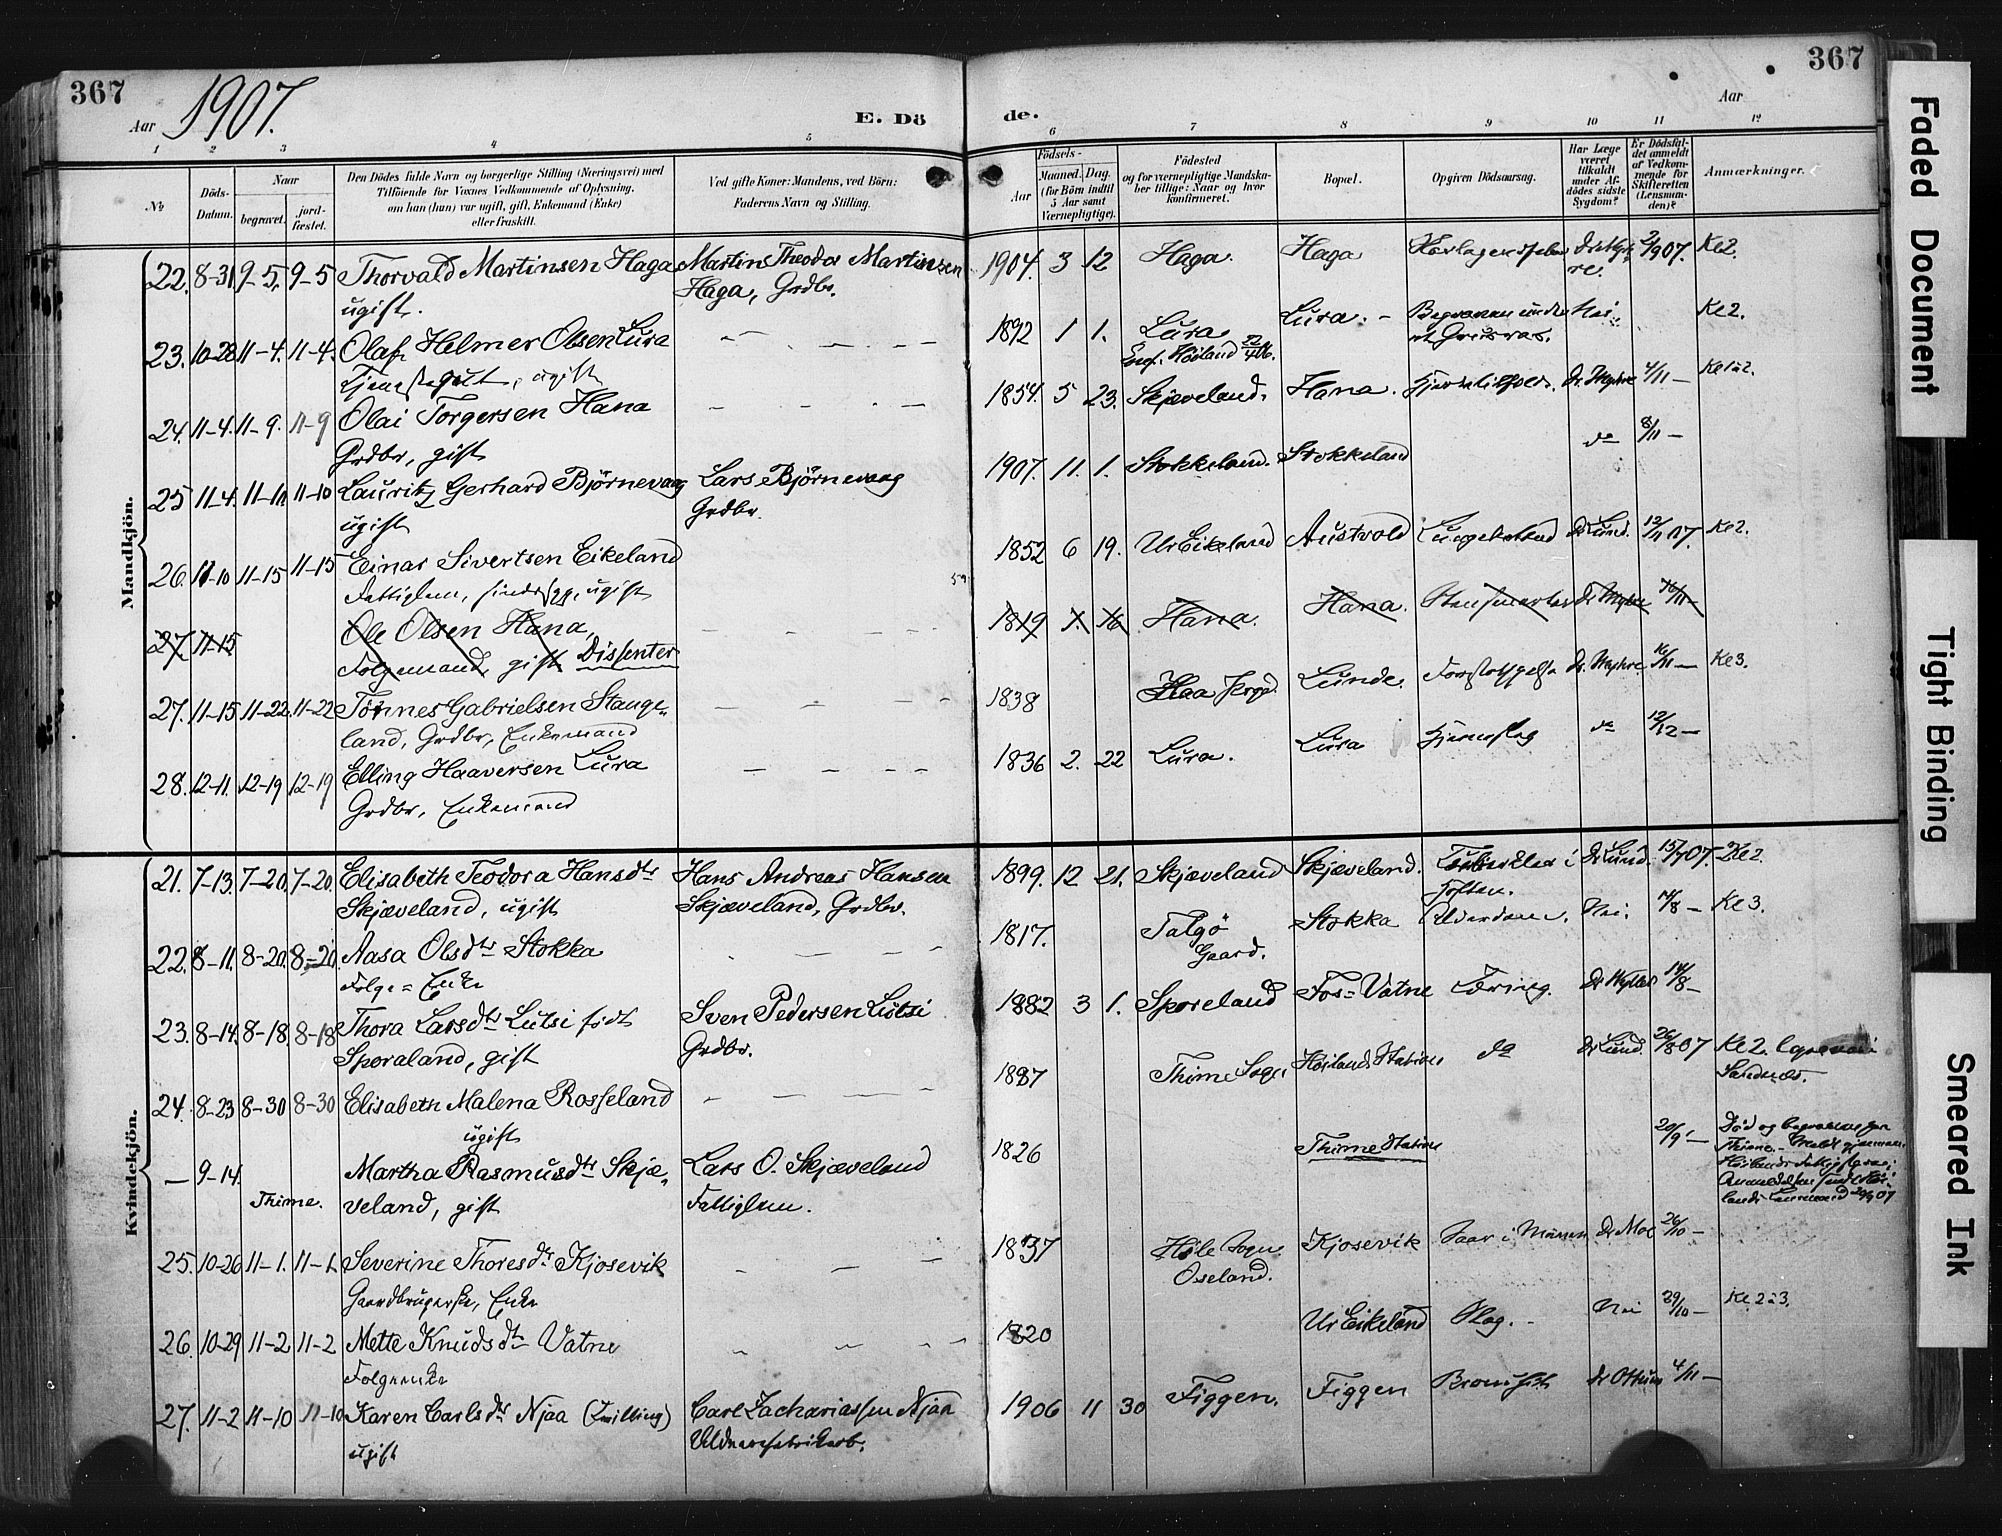 367
Aar 1907.
E. Dö
de.
Aar
367
1 2 3 4 5 6 7 8 9 10 11 12
№
Döds-Datum.
Naar
begravet.
jord-fæstet.
Den Dödes fulde Navn og borgerlige Stilling (Næringsvei) med
Tilföiende for Voxnes Vedkommende af Oplysning,
om han (hun) var ugift, gift, Enkemand (Enke)
eller fraskilt.
Ved gifte Koner: Mandens, ved Börn:
Faderens Navn og Stilling.
Födsels-
Aar
Maaned. Dag.
(for Börn indtil
5 Aar samt
Værnepligtige).
Födested
og for værnepligtige Mandska-
ber tillige: Naar og hvor
konfirmeret.
Bopæl.
Opgiven Dödsaarsag.
Har Læge
været
tilkaldt
under Af-
dödes sidste
Sygdom?
Er Dödsfal-
det anmeldt
af Vedkom-
mende for
Skifteretten
(Lensman-
den)?
Anmærkninger.
Mandkjön.
22. 8-31 9-5. 9-5 Thorvald Martinsen Haga Martin Theodor Martinsen 1904. 3 12 Haga. Haga 2/9 07. Ke 2.
ugift. Haga, Grdbr.
23. 10-28 11-4. 11-4. Olaf Helmer Olsen Lura 1892 1 1. Lura Lura. Nei Ke 2.
Tjenestegut, ugift Höiland
24. 11-4. 11-9. 11-9 Olai Torgersen Hana 1854. 5 23. Skjæveland. Hana. Dr. Myhre 4/11 —
Grdbr, gift
25 11-4. 11-10 11-10 Lauritz Gerhard Björnevaag Lars Björnevaag 1907. 11. 1. Stokkeland. Stokkeland do 8/11 —
ugift Grdbr.
26. 11-10 11-15 11-15 Einar Sivertsen Eikeland 1852 6 19. Ur Eikeland Austvold Dr Lund. 12/11 07. Ke 2.
Fattiglem, ugift
27 11-15 Ole Olsen Hana, 1819 Hana. Hana. Dr Myhre
Folgemand, gift Dissenter
27. 11-15 11-22. 11-22 Tönnes Gabrielsen Stange- 1838 Lunde. Dr. Myhre Ke 3.
land, Grdbr, Enkemand
28. 12-11. 12-19 12-19 Elling Haaversen Lura 1836 2. 22 Lura. Lura Hjerneslag do 12/12 —
Grdbr, Enkemand
Kvindekjön.
21. 7-13. 7-20. 7-20. Elisabeth Teodora Hansdtr Hans Andreas Hansen 1899. 12 21. Skjæveland Skjæveland. Tuberkler i Dr Lund. 15/7 07. Ke 2.
Skjæveland, ugift Skjæveland, Grdbr. Hoften.
22. 8-11. 8-20. 8-20. Aasa Olsdtr Stokka 1817. Talgö Stokka Alderdom. Nei. Ke 3.
Folge-Enke Gaard.
23. 8-14. 8-18. 8-18 Thora Larsdtr Lutsi födt Sven Pedersen Lutsi 1882 3 1. Sporeland Fos-Vatne Tæring. 14/8 —
Sporaland, gift Grdbr.
24. 8-23 8-30 8-30 Elisabeth Malena Rosseland 1887 Thime Sogn Höilands Station do Dr Lund. 26/8 07 Ke 2.
ugift Sandnes.
— 9-14. Martha Rasmusdtr Skjæ- Lars O. Skjæveland 1826 Thime Station 20/9 —
Thime. veland, gift Fattiglem.
Död og begraven
Thime.
25. 10-26 11-1. 11-1. Severine Thoresdtr Kjosevik 1837 Höle Sogn Kjosevik Saar i Maven Dr Moe 26/10 —
Gaardbrugerske, Enke Oseland.
26. 10-29 11-2 11-2 Mette Knudsdtr Vatne 1820 Ur Eikeland Slag. Nei 29/10 — Ke. 2 à 3.
Folgeenke
27. 11-2 11-10 11-10 Karen Carlsdtr Njaa (Tvilling) Carl Zachariassen Njaa 1906 11 30 Figgen. Figgen 4/11 —
ugift Uldvarefabrikarb.
Faded Document
Tight Binding
Smeared Ink